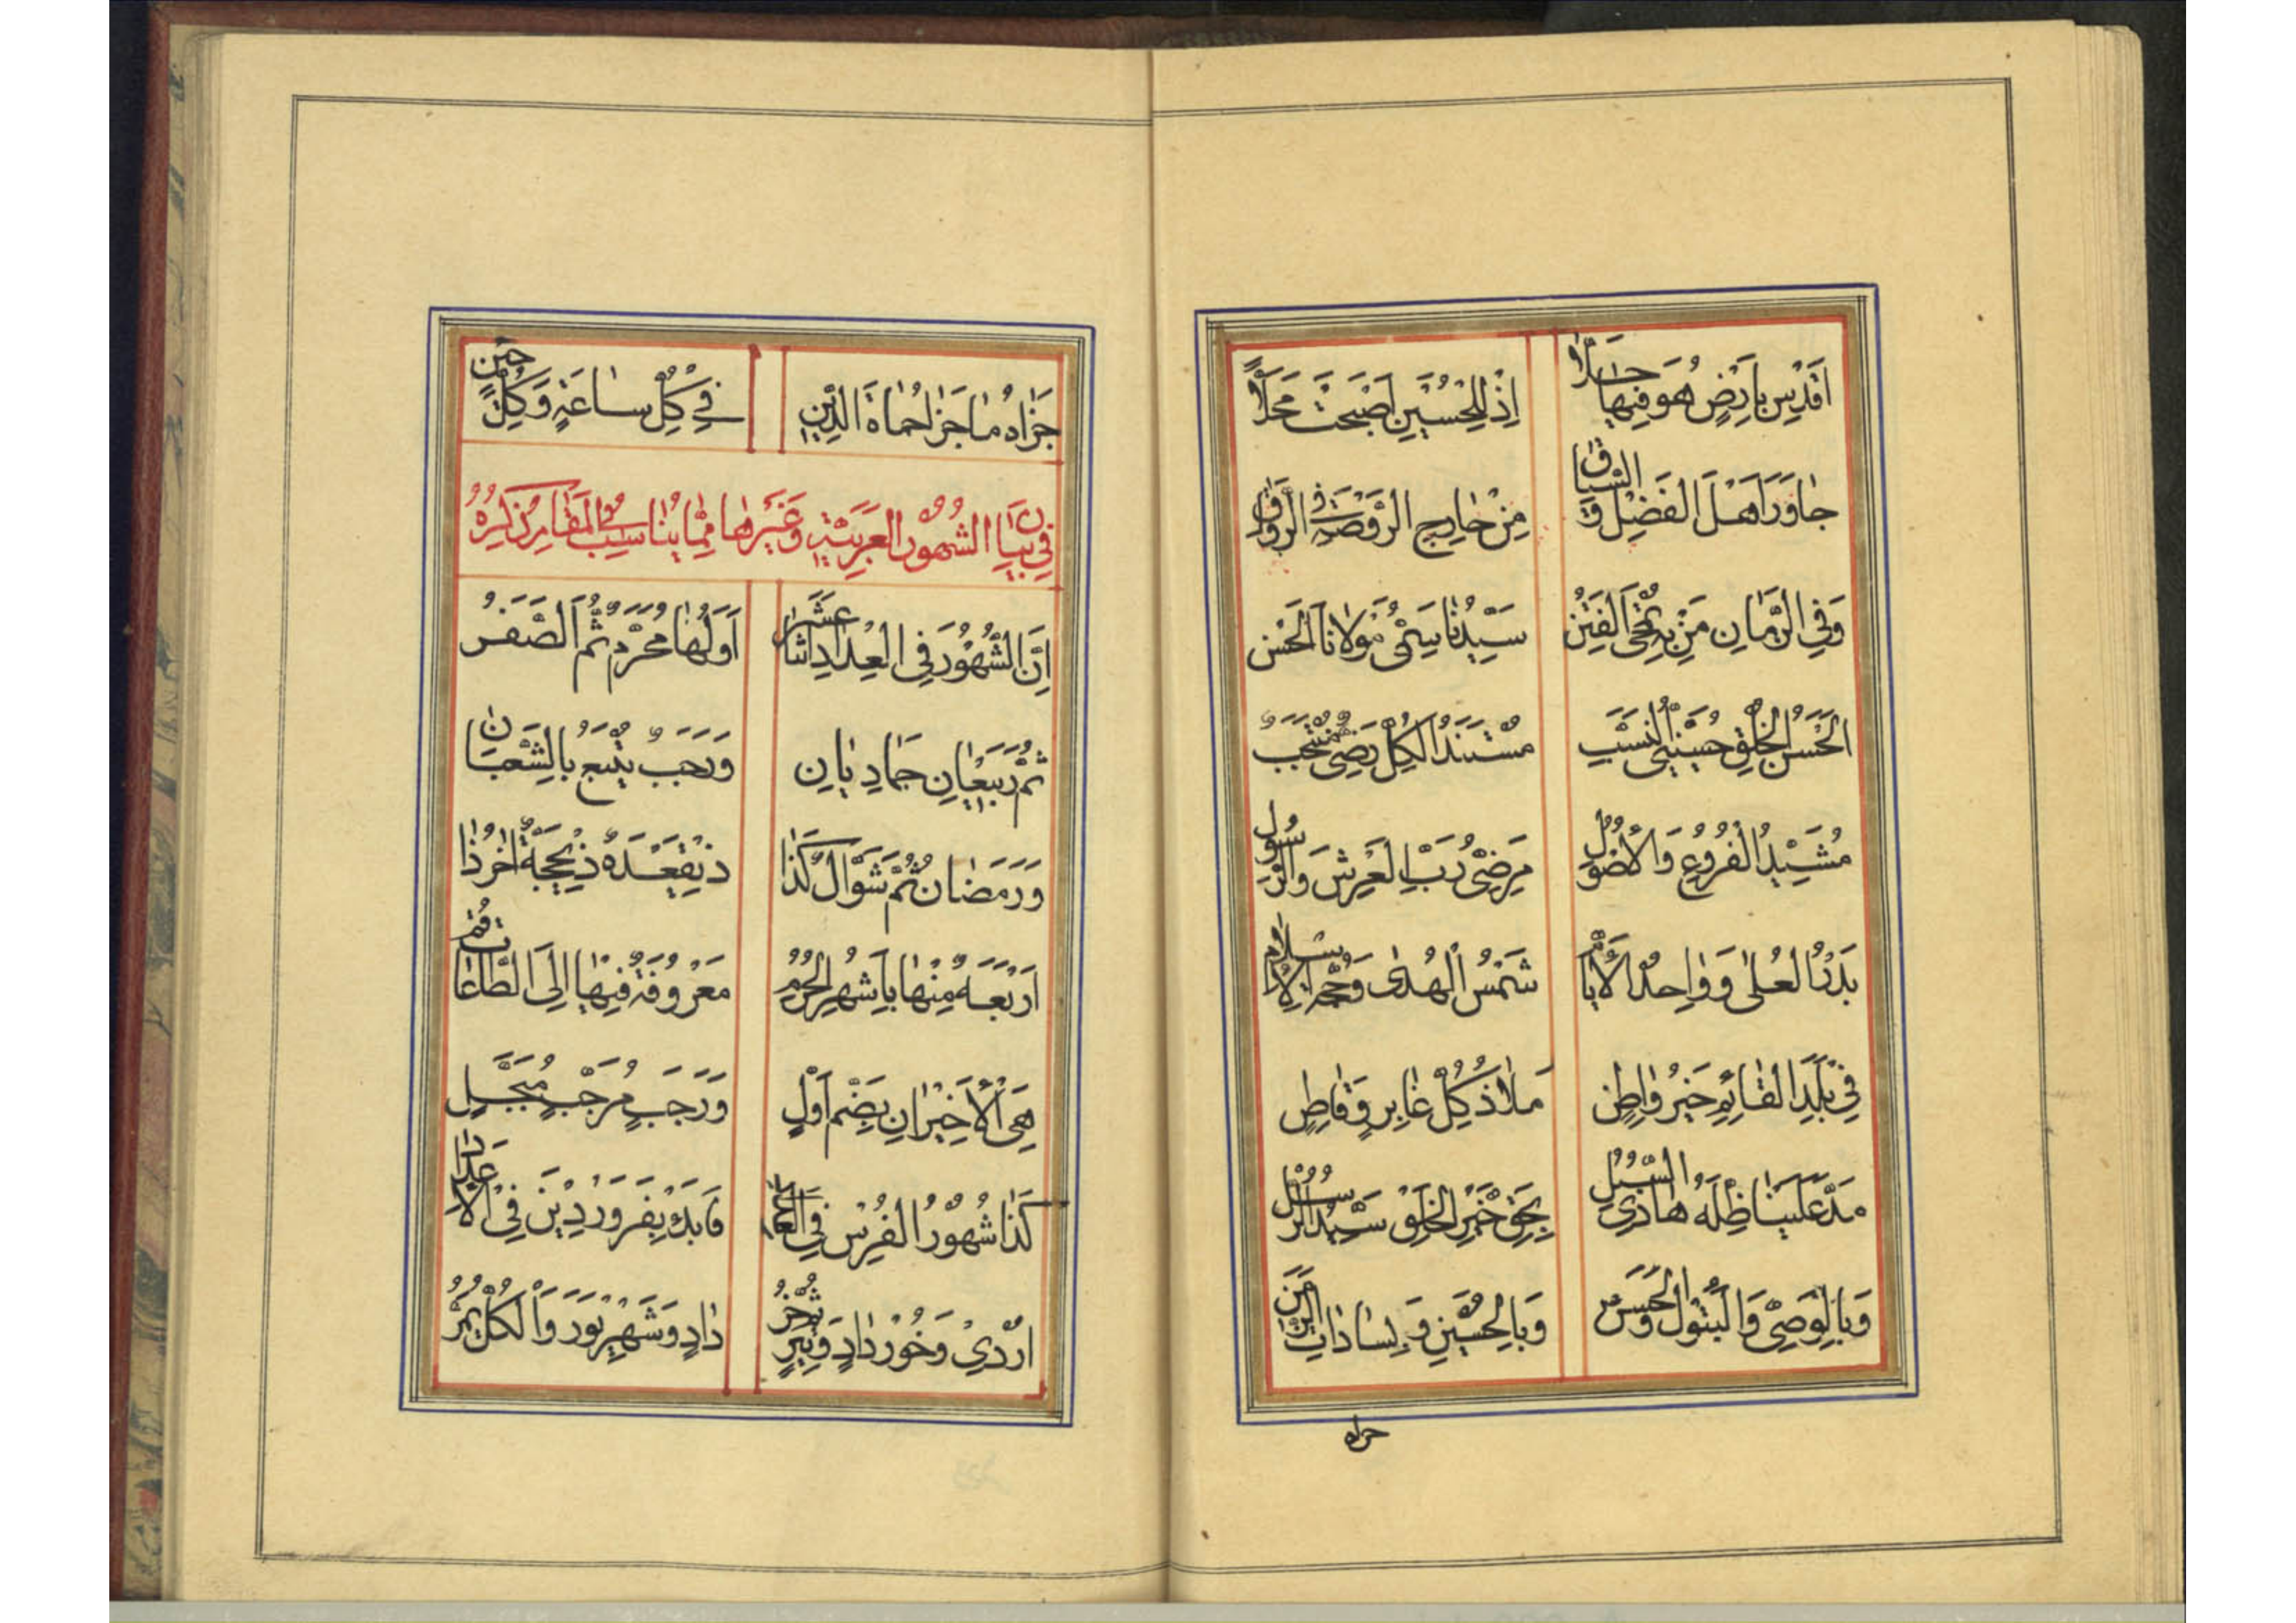 اَقْدِسْ بِاَرْضٍ هُوَ فيهَا حَلاّ اِذْ لِلْحُسَيْنِ اَصْبَحَتْ مَحَلاًّ
جٰاوَرَ اَهْلَ الْفَضْلِ وَ السِّبٰاقِ مِنْ خٰارِجِ الرَّوْضَةِ فِي الرِّوٰاقِ
وَفِي الزَّمٰانِ مَنْ بِهِ تُمْحَى الْفِتَنُ سَيِّدُنٰا سَمِيُّ مَوْلانٰا الْحَسَنْ
اَلْحَسَنُ الْخُلْقِ حُسَيْنِيُّ النَّسَبِ مُسْتَنَدُ الْكُلِّ رَضِيٌّ مُنْتَجَبٌ
مُشَيِّدُ الْفُرُوعِ وَالْاُصُولِ مَرْضِيُّ رَبِّ الْعَرْشِ وَالرَّسُولِ
بَدْرُ الْعُلىٰ وَوٰاحِدُ الْاَيّٰامِ شَمْسُ الْهُدىٰ وَحُجَّةُ الْاِسْلامِ
فِي بَلَدِ الْقٰائِمِ خَيْرُ وٰاطِنٍ مَلاذُ كُلِّ عٰابِرٍ وَقٰاطِنٍ
مَدَّ عَلَيْنٰا ظِلَّهُ هٰادِي السُّبُلِ بِحَقِّ خَيْرِ الْخَلْقِ سَيِّدِ الرُّسُلِ
وَبِالْوَصِيِّ وَالْبَتُولِ وَالْحَسَنْ وَبِالْحُسَيْنِ وَبِسٰادٰاتِ الزَّمَنْ
جزاه
جَزٰاهُ مٰا جَزٰا حُمٰاةَ الدِّينِ فِي كُلِّ سٰاعَةٍ وَكُلِّ حِينٍ
فِي بَيٰانِ الشُّهُورِ الْعَرَبِيَّةِ وَغَيْرِهٰا مِمّٰا يُنٰاسِبُ فِي الْمَقٰامِ ذِكْرُهُ
اِنَّ الشُّهُورَ فِي الْعِدٰادِ اثْنٰا عَشَرْ اَوَّلُهٰا مُحَرَّمٌ ثُمَّ الصَّفَرُ
ثُمَّ رَبِيعٰانِ جَمٰادِيٰانِ وَرَجَبٌ يُتْبَعُ بِالشَّعْبٰانِ
وَرَمَضٰانُ ثُمَّ شَوّٰالُ كَذٰا ذِيقَعْدَةٌ ذِيحِجَّةٌ اٰخِرُ ذٰا
اَرْبَعَةٌ مِنْهٰا بِاَشْهُرِ الْحُرُمِ مَعْرُوفَةٌ فِيهٰا اِلَى الطّٰاعٰاتِ قُمْ
هِيَ الْاَخِيرٰانِ بِضَمِّ اَوَّلِ وَرَجَبٍ مُرَجَّبٍ مُبَجَّلٍ
كَذٰا شُهُورُ الْفُرْسِ فِي فَابْدَءْ بِفَرْوَرْدِينَ فِي الْاَعْدٰادِ
اُرْدِيْ وَخُورْدٰادٍ وَتِيرٍ ثُمَّ خُرْ دٰادٍ وَشَهْرِيوَرَ وَالْكُلُّ يَمُرُّ